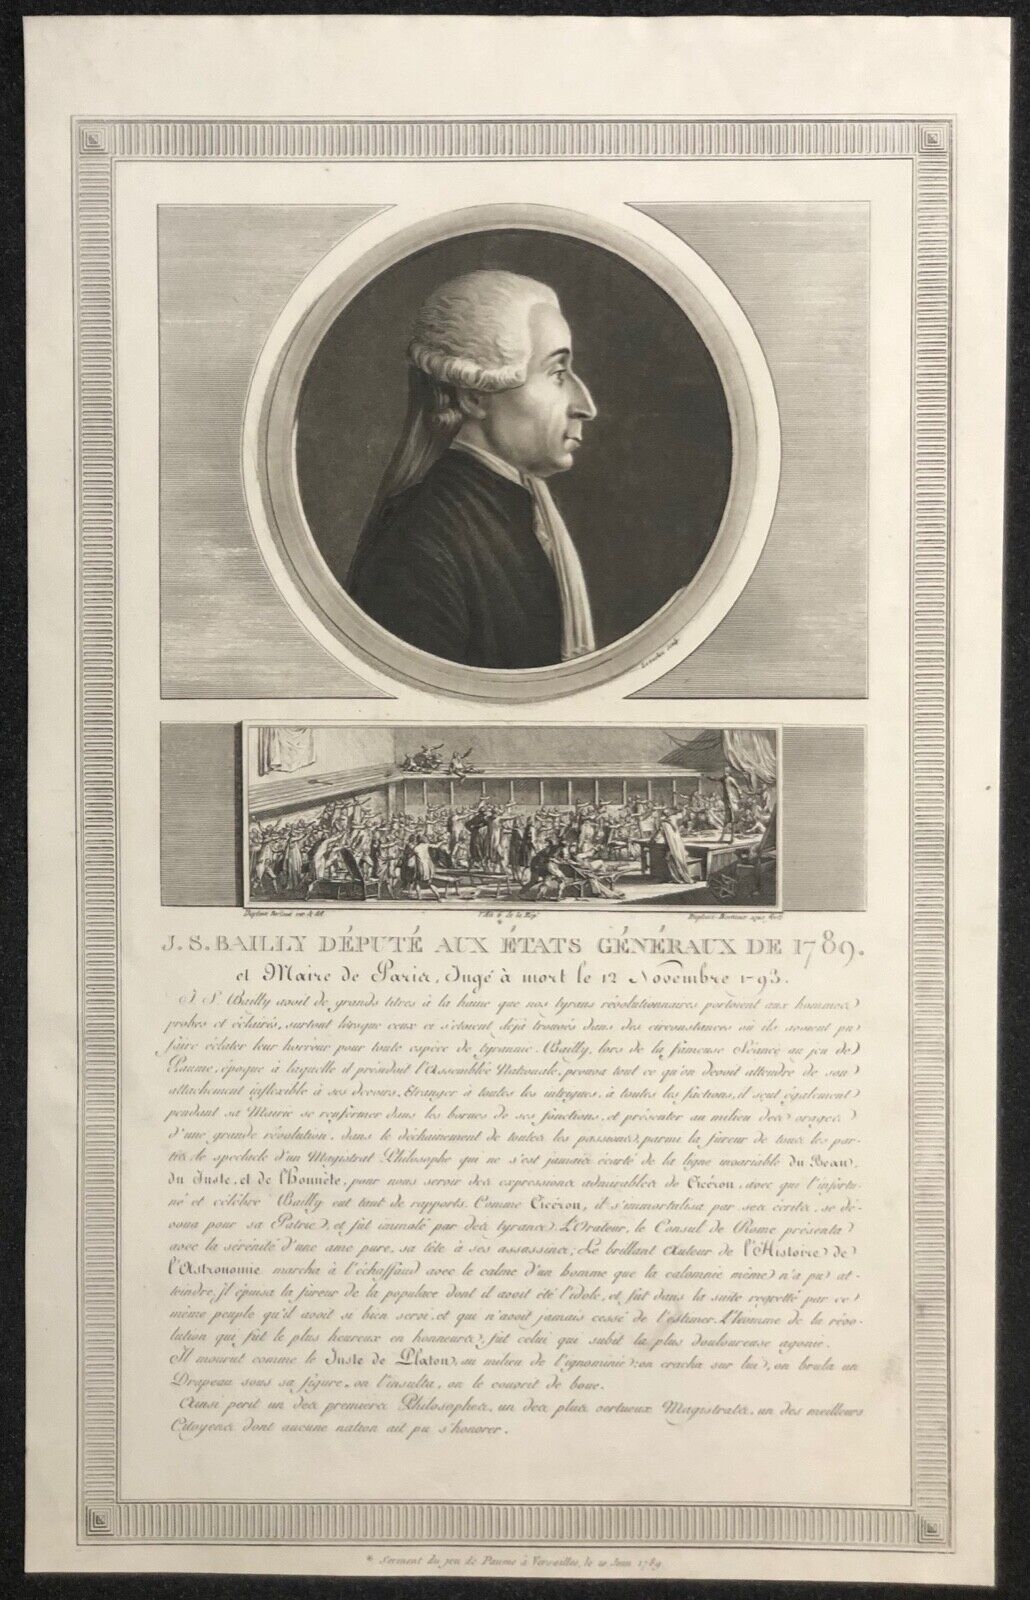 Levachez Sculp.
Duplessi Bertaux inv. & del.
l'An 6 de la Rép.
Duplessi-Bertaux aqua forti
*
J. S. BAILLY DÉPUTÉ AUX ÉTATS GÉNÉRAUX DE 1789.
et Maire de Paris, Jugé à mort le 12 Novembre 1793.
J. S. Bailly avoit de grands titres à la haine que nos tyrans révolutionnaires portoient aux hommes
probes et éclairés, surtout lorsque ceux ci s'étoient déjà trouvés dans des circonstances où ils avoient pu
faire éclater leur horreur pour toute espèce de tyrannie. Bailly, lors de la fameuse Séance au jeu de
Paume, époque à laquelle il présidoit l'Assemblée Nationale, prouva tout ce qu'on devoit attendre de son
attachement inflexible à ses devoirs. Etranger à toutes les intrigues, à toutes les factions, il sçut également
pendant sa Mairie se renfermer dans les bornes de ses fonctions, et présenter au milieu des orages
d'une grande révolution, dans le déchainement de toutes les passions, parmi la fureur de tous les par-
tis, le spectacle d'un Magistrat Philosophe qui ne s'est jamais écarté de la ligne invariable du Beau,
du Juste, et de l'Honnête, pour nous servir des expressions admirables de Cicéron, avec que l'infortu-
né et célèbre Bailly eut tant de rapports. Comme Cicéron, il s'immortalisa par ses écrits, se dé-
voua pour sa Patrie, et fut immolé par des tyrans. L'Orateur, le Consul de Rome présenta
avec la sérénité d'une ame pure, sa tête à ses assassins; Le brillant Auteur de l'Histoire de
l'Astronomie marcha à l'échaffaud avec le calme d'un homme que la calomnie même n'a pu at-
teindre, Il épuisa la fureur de la populace dont il avoit été l'idole, et fut dans la suite regretté par ce
même peuple qu'il avoit si bien servi, et qui n'avoit jamais cessé de l'estimer. L'homme de la révo-
lution qui fut le plus heureux en honneurs, fut celui qui subit la plus douloureuse agonie.
Il mourut comme le Juste de Platon, au milieu de l'ignominie; on cracha sur lui, on brula un
Drapeau sous sa figure, on l'insulta, on le couvrit de boue.
Ainsi périt un des premiers Philosophes, un des plus vertueux Magistrats, un des meilleurs
Citoyens dont aucune nation ait pu s'honorer.
* Serment du jeu de Paume à Versailles, le 20 Juin 1789.